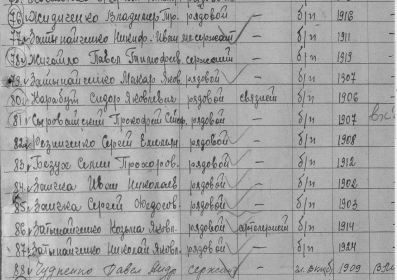 76 Жидиченко Владимер Гр. рядовой — б/п 1918
77 Затынайченко Никиф. Иван мл сержант — б/п 1911
78 Жигайло Павел Тимофеев. сержант — б/п 1919
79 Затынайченко Макар Яков рядовой — б/п 1907
80 Карабут Сидор Яковлевич рядовой связист б/п 1906
81 Прокофей рядовой — б/п 1907
82 Розниченко Сергей рядовой — б/п 1908
83 Безух Семен Прохоров. рядовой — б/п 1912
84 Заичка Иван Николаев рядовой — б/п 1902
85 Заичка Сергей Федосов. рядовой — б/п 1903
86 Затынайченко Кузма Яковл. рядовой б/п 1914
87 Затынайченко Николай Яковл. рядовой — б/п 1924
88 Гудненко Павел сержант — чл. вкпб 1909